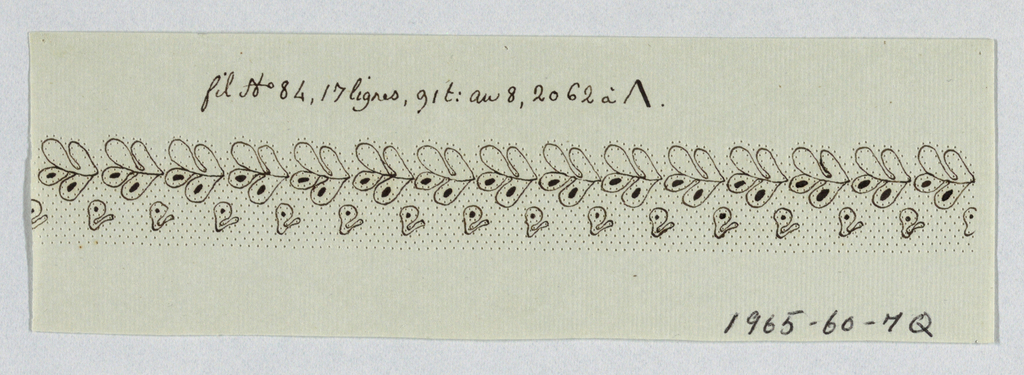 fil No 84, 17 lignes, 91t: au 8, 2062 à Λ.
1965-60-7Q